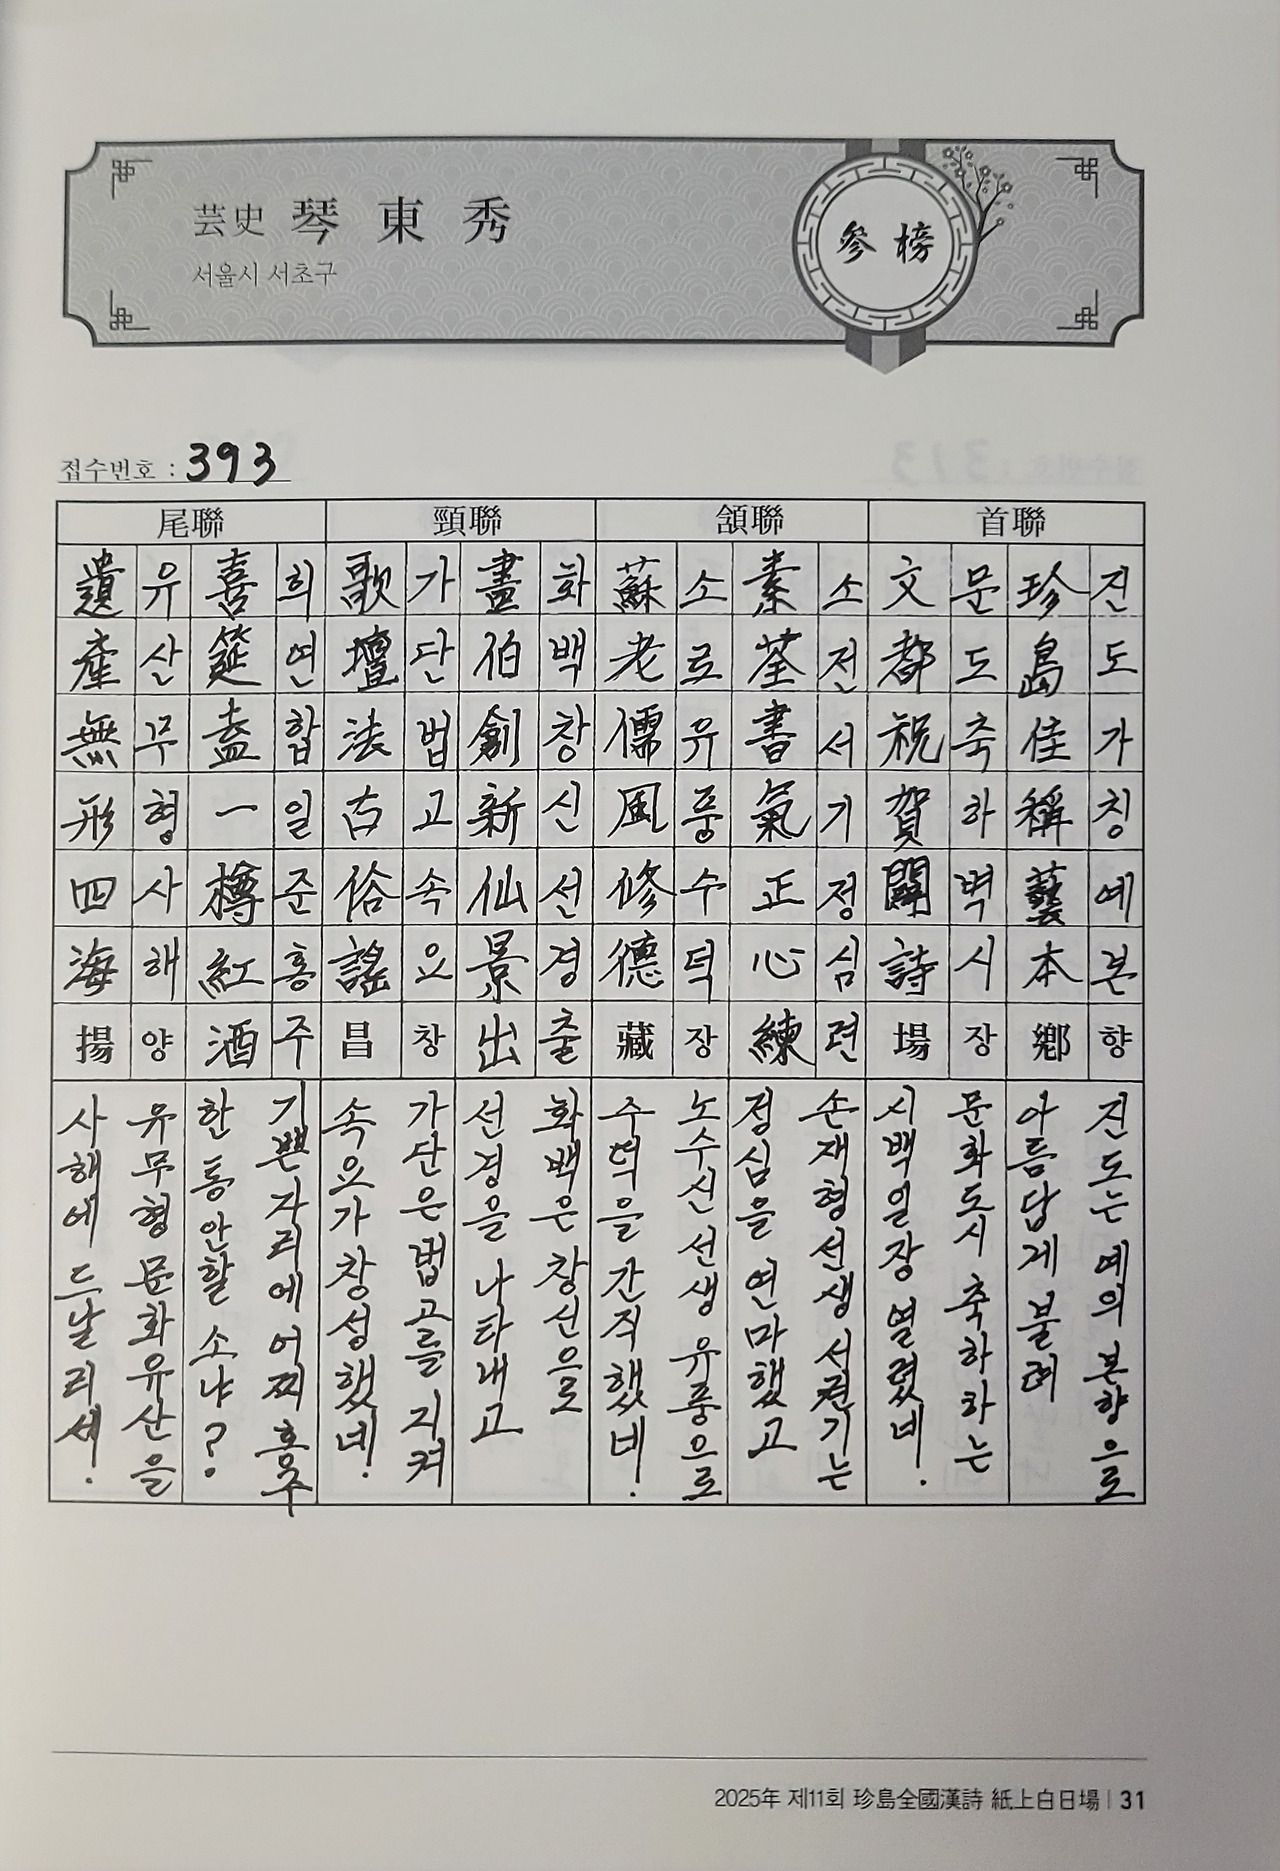 芸史 琴東秀
서울시 서초구
參榜
접수번호 : 393
首聯
珍島佳稱藝本鄕
진도가칭예본향
文都祝賀闢詩場
문도축하벽시장
頷聯
素荃書氣正心練
소전서기정심련
蘇老儒風修德藏
소로유풍수덕장
頸聯
畫伯創新仙景出
화백창신선경출
歌壇法古俗謠昌
가단법고속요창
尾聯
喜筵盍一樽紅酒
희연합일준홍주
遺産無形四海揚
유산무형사해양
진도는 예의 본향으로
아름답게 불려
문화도시 축하하는
시백일장 열렸네!
손재형선생 서권기는
정심을 연마했고
노수신 선생 유풍으로
수덕을 간직했네!
화백은 창신으로
선경을 나타내고
가단은 법고를 지켜
속요가 창성했네!
기쁜자리에 어찌 홍주
한동안할 소냐?
유무형 문화유산을
사해에 드날리세!
2025年 제11회 珍島全國漢詩 紙上白日場 | 31